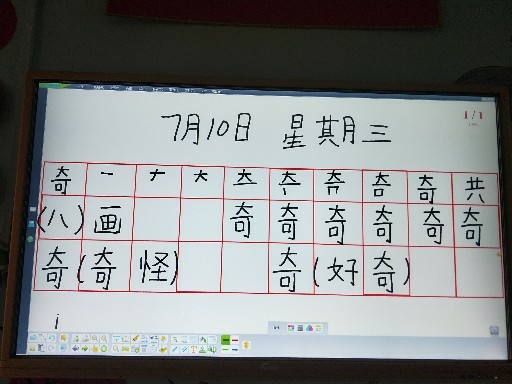 7月10日 星期三
1/1
奇 一 ナ 大 奇 共
(八) 画 奇 奇 奇 奇 奇 奇
奇 (奇 怪) 奇 (好 奇)
i